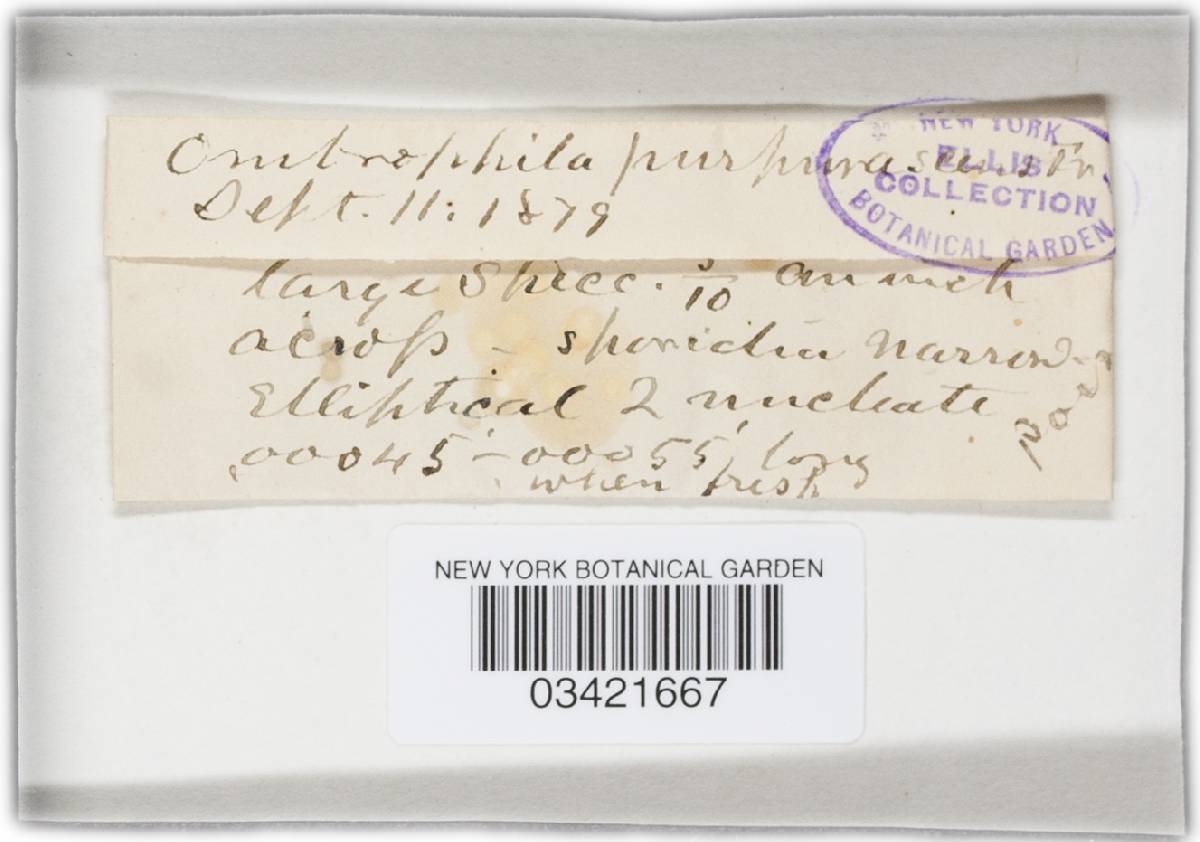 Ombrophila purpurascens Fr.
Sept. 11: 1879
NEW YORK
ELLIS
COLLECTION
BOTANICAL GARDEN
large Specc. 3/10 an inch
across - sporidia narrow
Elliptical 2 nucleate
.00045'-.00055' long
when fresh
NEW YORK BOTANICAL GARDEN
03421667